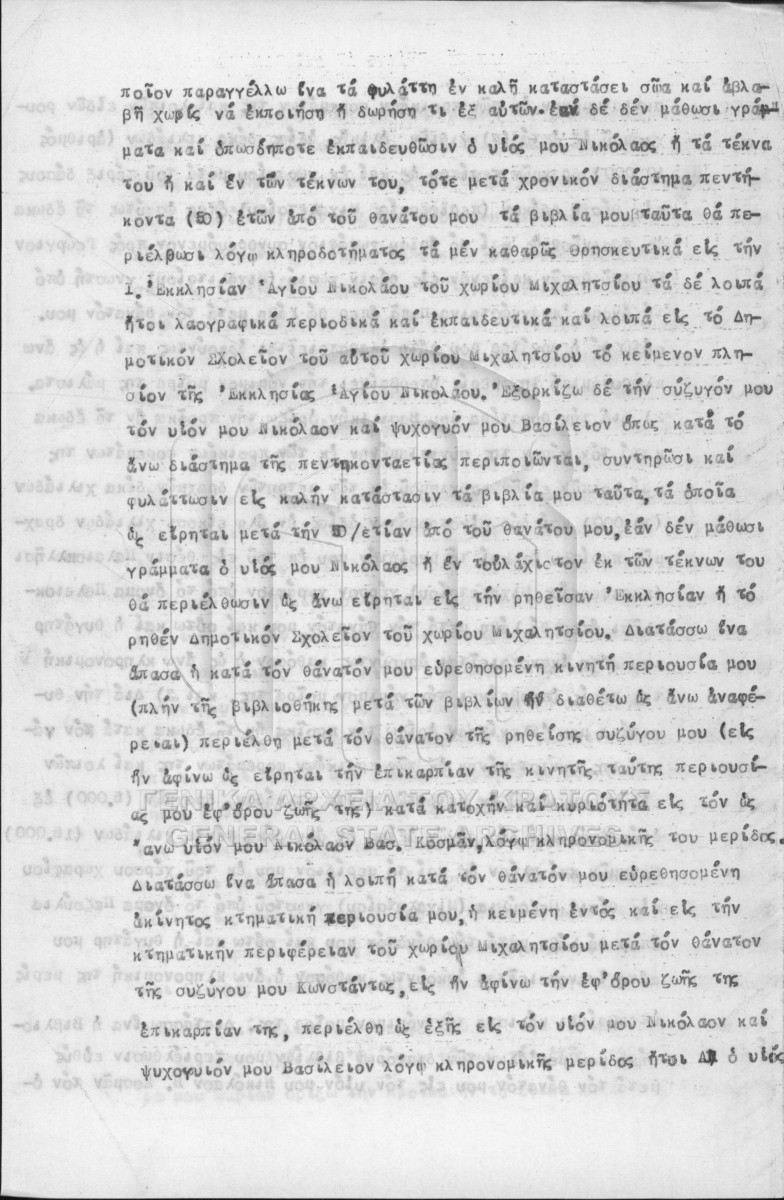 ποῖον παραγγέλλω ἵνα τά φυλάττη ἐν καλῇ καταστάσει σῶα καί ἀβλα-
βῆ χωρίς νά ἐκποιήσῃ ἤ δωρήσῃ τι ἐξ αὐτῶν.ἐάν δέ δέν μάθωσι γράμ-
ματα καί ὁπωσδήποτε ἐκπαιδευθῶσιν ὁ υἱός μου Νικόλαος ἤ τά τέκνα
του ἤ καί ἕν τῶν τέκνων του, τότε μετά χρονικόν διάστημα πεντή-
κοντα (50) ἐτῶν ἀπό τοῦ θανάτου μου τά βιβλία μου ταῦτα θά πε-
ριέλθωσι λόγῳ κληροδοτήματος τά μέν καθαρῶς θρησκευτικά εἰς τήν
Ι. Ἐκκλησίαν Ἁγίου Νικολάου τοῦ χωρίου Μιχαλητσίου τά δέ λοιπά
ἤτοι λαογραφικά περιοδικά καί ἐκπαιδευτικά καί λοιπά εἰς τό Δη-
μοτικόν Σχολεῖον τοῦ αὐτοῦ χωρίου Μιχαλητσίου τό κείμενον πλη-
σίον τῆς Ἐκκλησίας Ἁγίου Νικολάου. Ἐξορκίζω δέ τήν σύζυγόν μου
τόν υἱόν μου Νικόλαον καί ψυχογυόν μου Βασίλειον ὅπως κατά τό
ἄνω διάστημα τῆς πεντηκονταετίας περιποιῶνται, συντηρῶσι καί
φυλάττωσιν εἰς καλήν κατάστασιν τά βιβλία μου ταῦτα, τά ὁποῖα
ὡς εἴρηται μετά τήν 50/ετίαν ἀπό τοῦ θανάτου μου, ἐάν δέν μάθωσι
γράμματα ὁ υἱός μου Νικόλαος ἤ ἕν τοὐλάχιστον ἐκ τῶν τέκνων του
θά περιέλθωσιν ὡς ἄνω εἴρηται εἰς τήν ρηθεῖσαν Ἐκκλησίαν ἤ τό
ρηθέν Δημοτικόν Σχολεῖον τοῦ χωρίου Μιχαλητσίου. Διατάσσω ἵνα
ἅπασα ἡ κατά τόν θάνατόν μου εὑρεθησομένη κινητή περιουσία μου
(πλήν τῆς βιβλιοθήκης μετά τῶν βιβλίων ἥν διαθέτω ὡς ἄνω ἀναφέ-
ρεται) περιέλθῃ μετά τόν θάνατον τῆς ρηθείσης συζύγου μου (εἰς
ἥν ἀφίνω ὡς εἴρηται τήν ἐπικαρπίαν τῆς κινητῆς ταύτης περιουσί-
ας μου ἐφ'ὅρου ζωῆς της) κατά κατοχήν καί κυριότητα εἰς τόν ὡς
ἄνω υἱόν μου Νικόλαον Βασ. Κοσμᾶν, λόγῳ κληρονομικῆς του μερίδος.
Διατάσσω ἵνα ἅπασα ἡ λοιπή κατά τόν θάνατόν μου εὑρεθησομένη
ἀκίνητος κτηματική περιουσία μου, ἡ κειμένη ἐντός καί εἰς τήν
κτηματικήν περιφέρειαν τοῦ χωρίου Μιχαλητσίου μετά τόν θάνατον
τῆς συζύγου μου Κωνστάντως, εἰς ἥν ἀφίνω τήν ἐφ'ὅρου ζωῆς της
ἐπικαρπίαν της, περιέλθῃ ὡς ἑξῆς εἰς τόν υἱόν μου Νικόλαον καί
ψυχογυιόν μου Βασίλειον λόγῳ κληρονομικῆς μερίδος ἤτοι Α) ὁ υἱός
ΓΕΝΙΚΑ ΑΡΧΕΙΑ ΤΟΥ ΚΡΑΤΟΥΣ
GENERAL STATE ARCHIVES